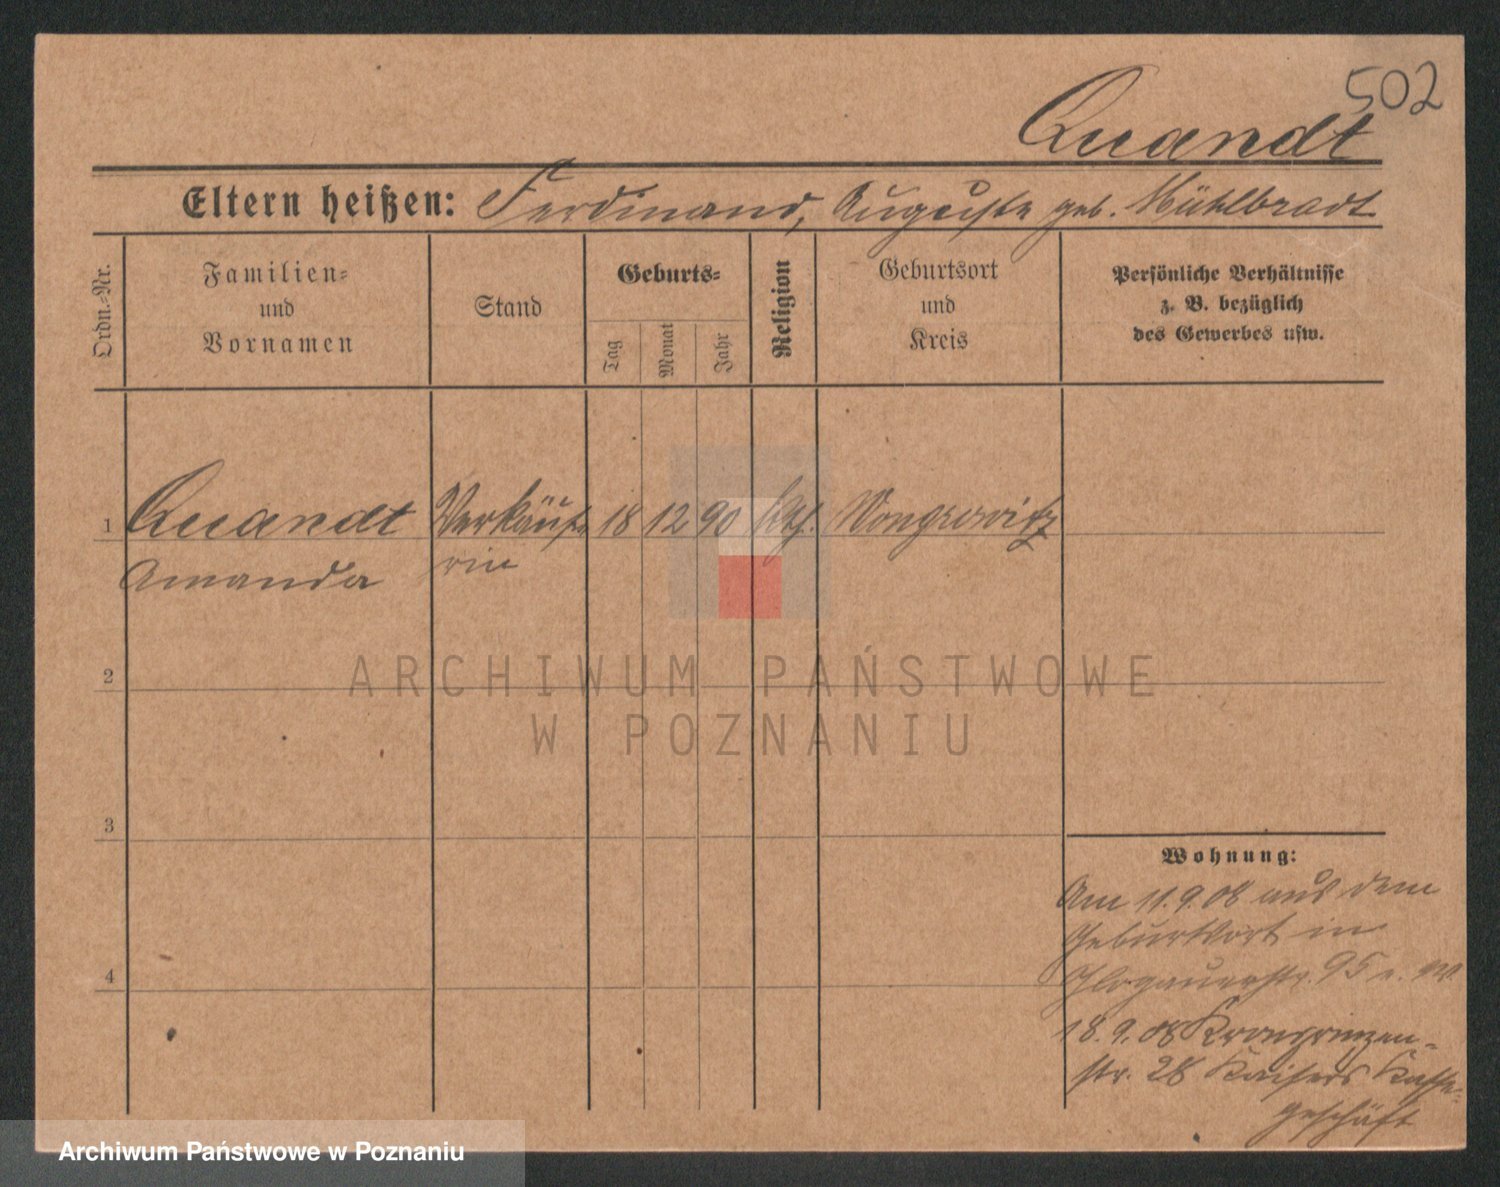 502
Quandt
Eltern heißen: Ferdinand, Auguste geb. Mühlbradt
Ordn.-Nr.
Familien-
und
Vornamen
Stand
Geburts-
Tag
Monat
Jahr
Religion
Geburtsort
und
Kreis
Persönliche Verhältnisse
z. B. bezüglich
des Gewerbes usw.
1 Quandt Verkäufe 18 12 90 Wongrowitz
Amanda rin
2
3
4
Wohnung:
Am 11.9.08 aus dem
Geburtsort in
Glogauerstr. 95
18.9.08 Kronprinzen-
str. 28 Kaisers Kaffe-
geschäft
ARCHIWUM PAŃSTWOWE
W POZNANIU
Archiwum Państwowe w Poznaniu